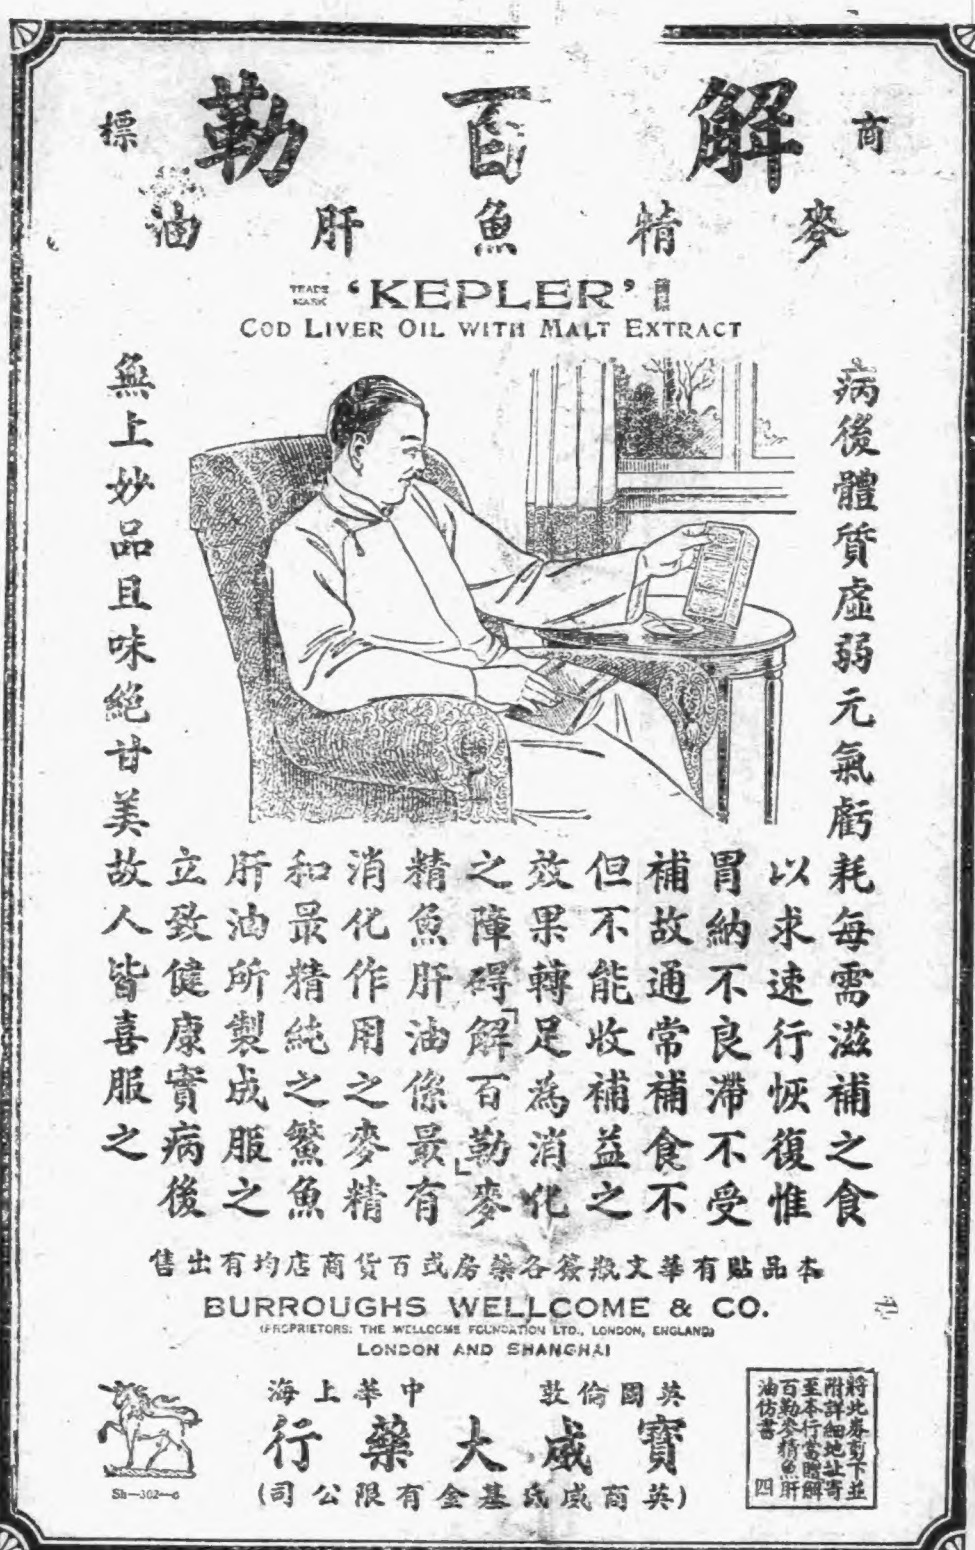 商標
解百勒
麥精魚肝油
TRADE MARK 'KEPLER'
COD LIVER OIL WITH MALT EXTRACT
病後體質虛弱元氣虧耗每需滋補之食
以求速行恢復惟
胃納不良滯不受
補故通常補食不
但不能收補益之
效果轉足為消化
之障碍「解百勒」麥
精魚肝油係最有
消化作用之麥精
和最精純之鱉魚
肝油所製成服之
立致健康實病後
無上妙品且味絕甘美故人皆喜服之
本品貼有華文瓶簽各藥房或百貨商店均有出售
BURROUGHS WELLCOME & CO.
(PROPRIETORS: THE WELLCOME FOUNDATION LTD., LONDON, ENGLAND)
LONDON AND SHANGHAI
英國倫敦 中華上海
寶威大藥行
(英商威氏基金有限公司)
Sh—302—c
將此券剪下並
附詳細地址寄
至本行當贈解
百勒麥精魚肝
油仿書 四